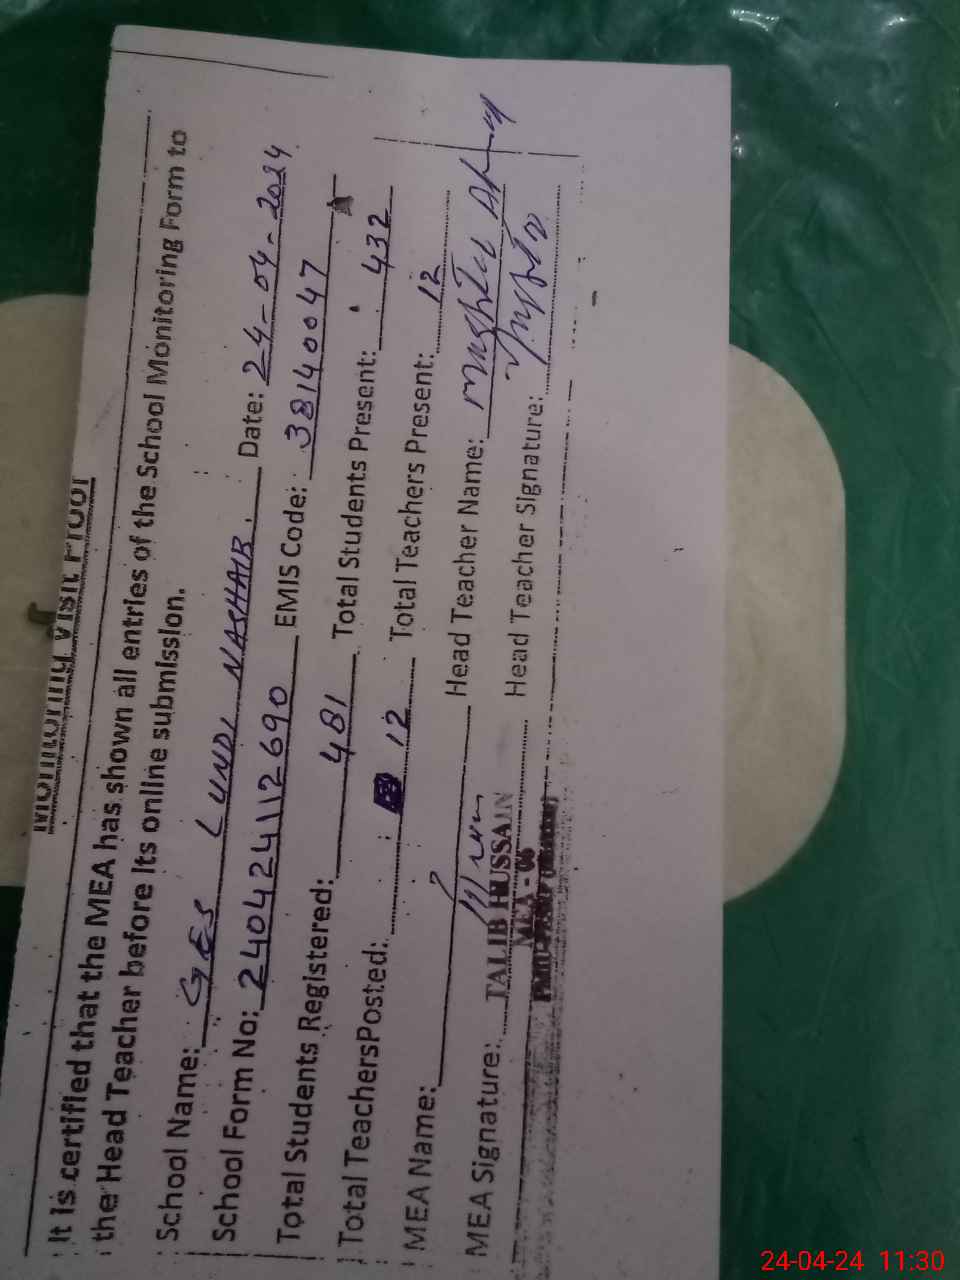 Monitoring Visit Proof
It is certified that the MEA has shown all entries of the School Monitoring Form to
the Head Teacher before its online submission.
School Name: GES LUNDI NASHAIB. Date: 24-04-2024
School Form No: 240424112690 EMIS Code: 38140047
Total Students Registered: 481 Total Students Present: 432
Total TeachersPosted: 12 Total Teachers Present: 12
MEA Name: Head Teacher Name:
MEA Signature: TALIB HUSSAIN Head Teacher Signature:
MEA - 06
24-04-24 11:30